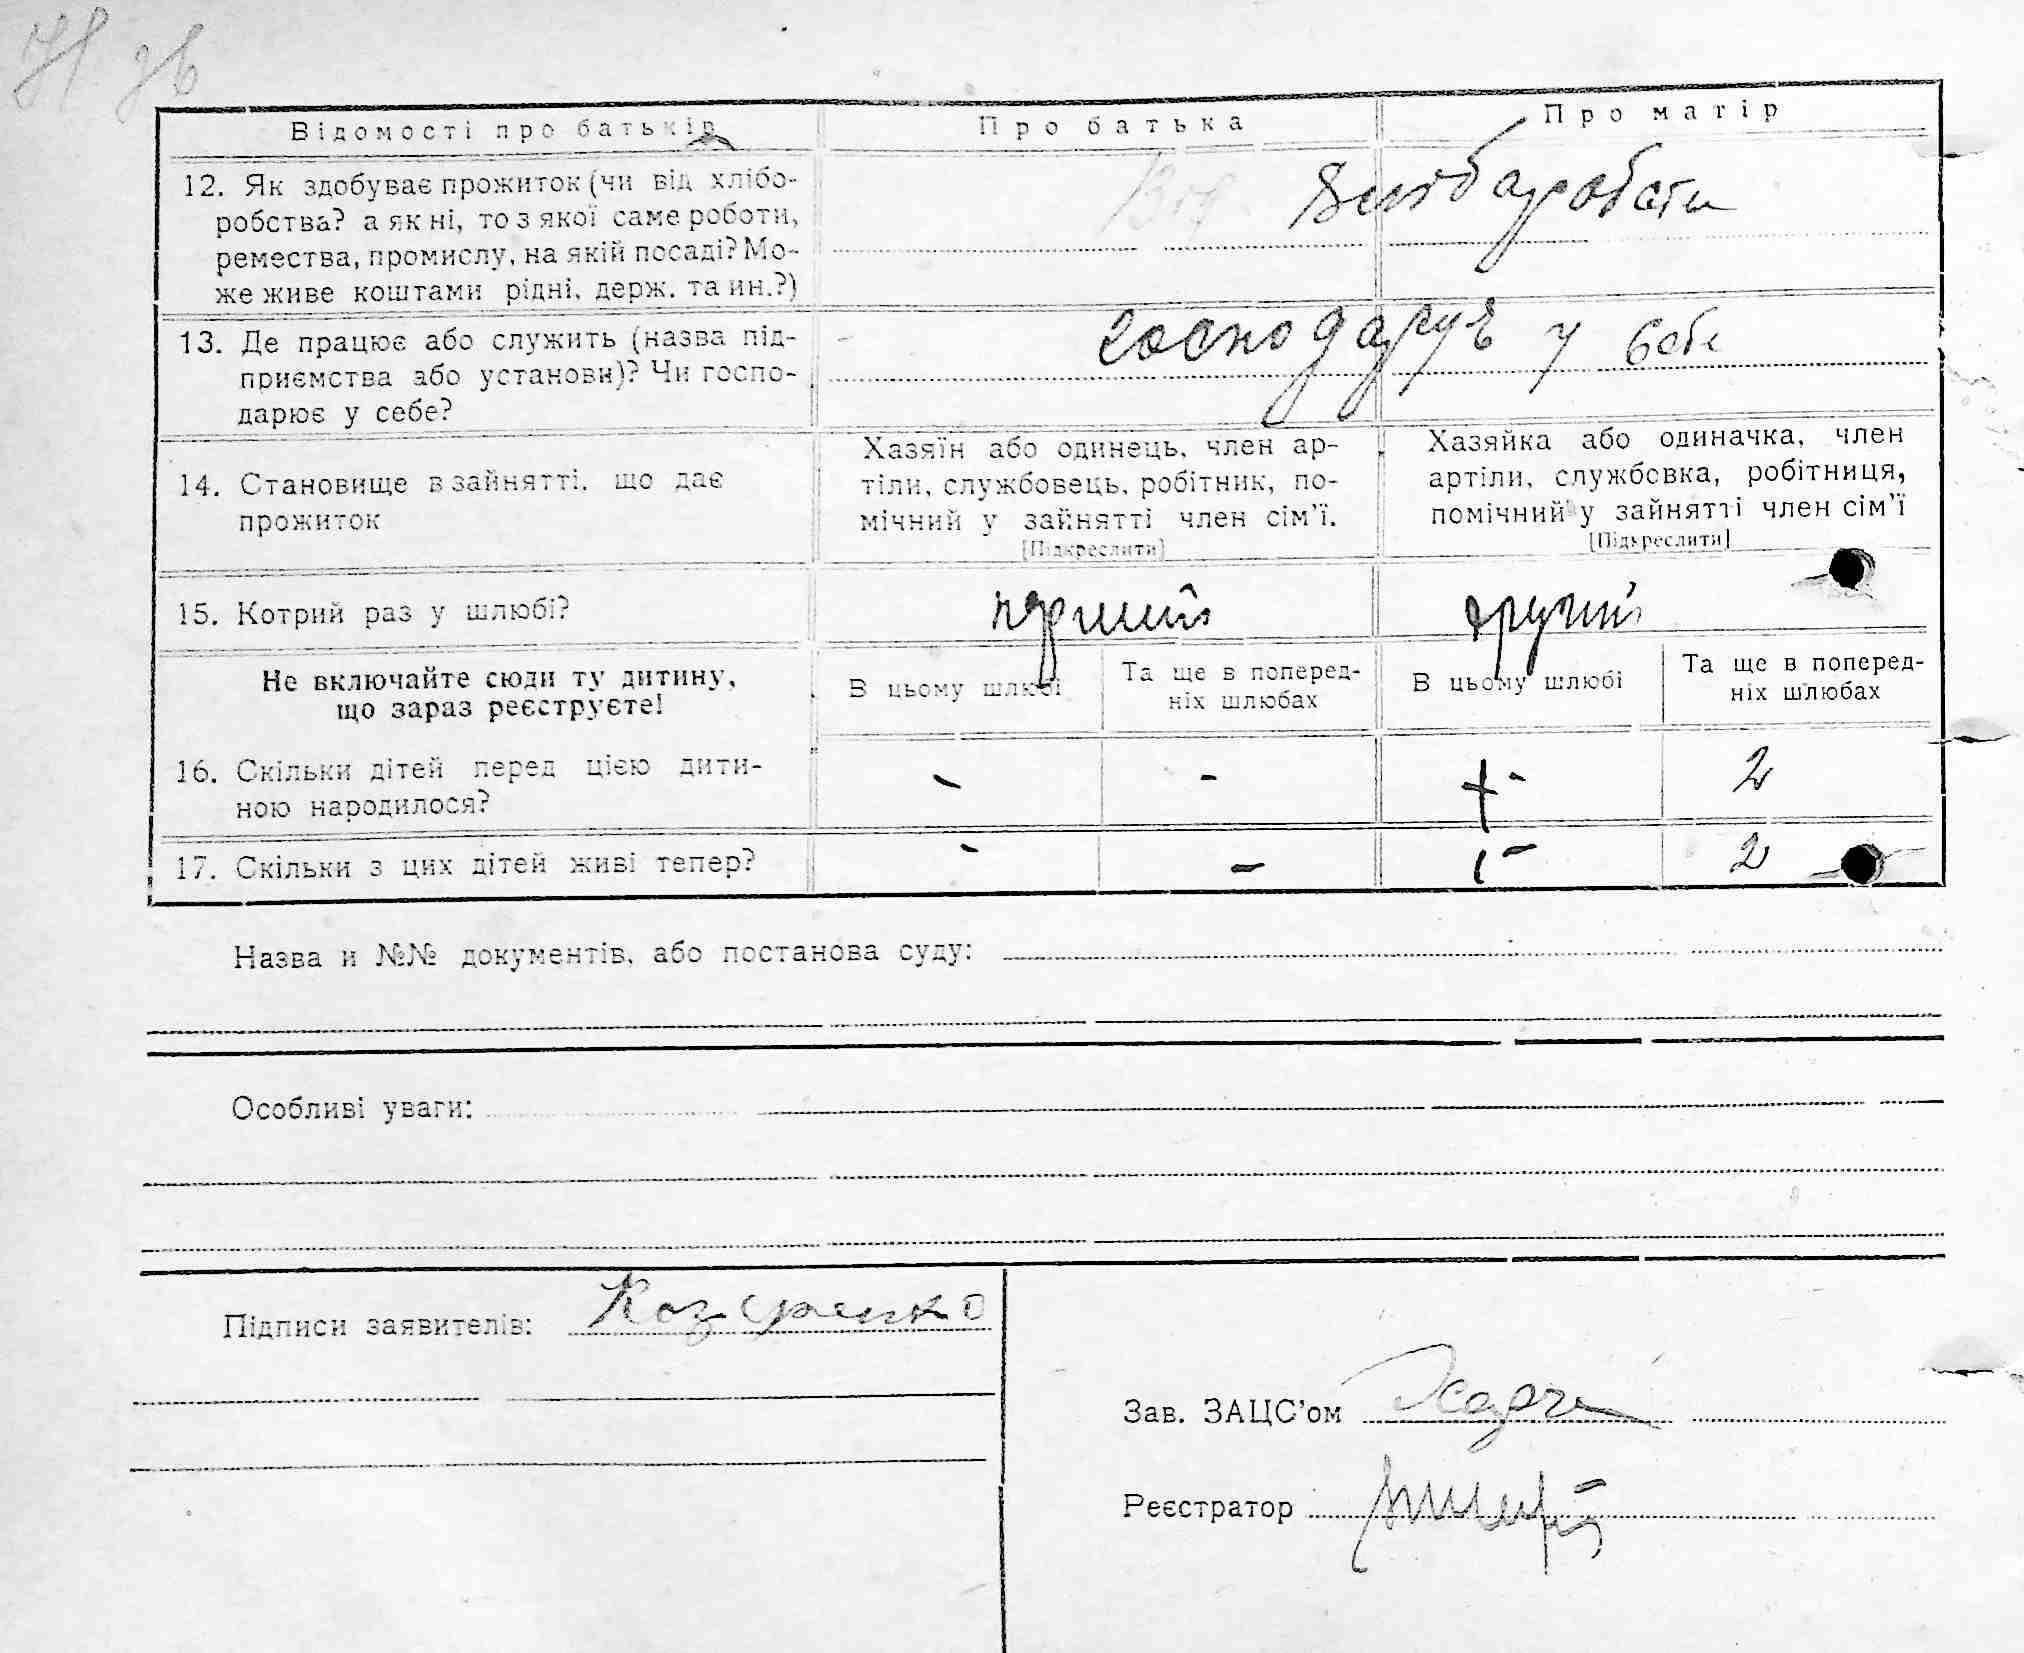 Відомості про батьків
Про батька
Про матір
12. Як здобуває прожиток (чи від хлібо-
робства? а як ні, то з якої саме роботи,
ремества, промислу, на якій посаді? Мо-
же живе коштами рідні, держ. та ин.?)
13. Де працює або служить (назва під-
приємства або установи)? Чи госпо-
дарює у себе?
господарує у себе
14. Становище в зайнятті, що дає
прожиток
Хазяїн або одинець, член ар-
тіли, службовець, робітник, по-
мічний у зайнятті член сім'ї.
[Підкреслити]
Хазяйка або одиначка, член
артіли, службовка, робітниця,
помічний у зайнятті член сім'ї
[Підкреслити]
15. Котрий раз у шлюбі?
перший
другий
Не включайте сюди ту дитину,
що зараз реєструєте!
В цьому шлюбі
Та ще в поперед-
ніх шлюбах
В цьому шлюбі
Та ще в поперед-
ніх шлюбах
16. Скільки дітей перед цією дити-
ною народилося?
- - - 2
17. Скільки з цих дітей живі тепер?
- - - 2
Назва и №№ документів, або постанова суду:
Особливі уваги:
Підписи заявителів: Козеренко
Зав. ЗАЦС'ом
Реєстратор